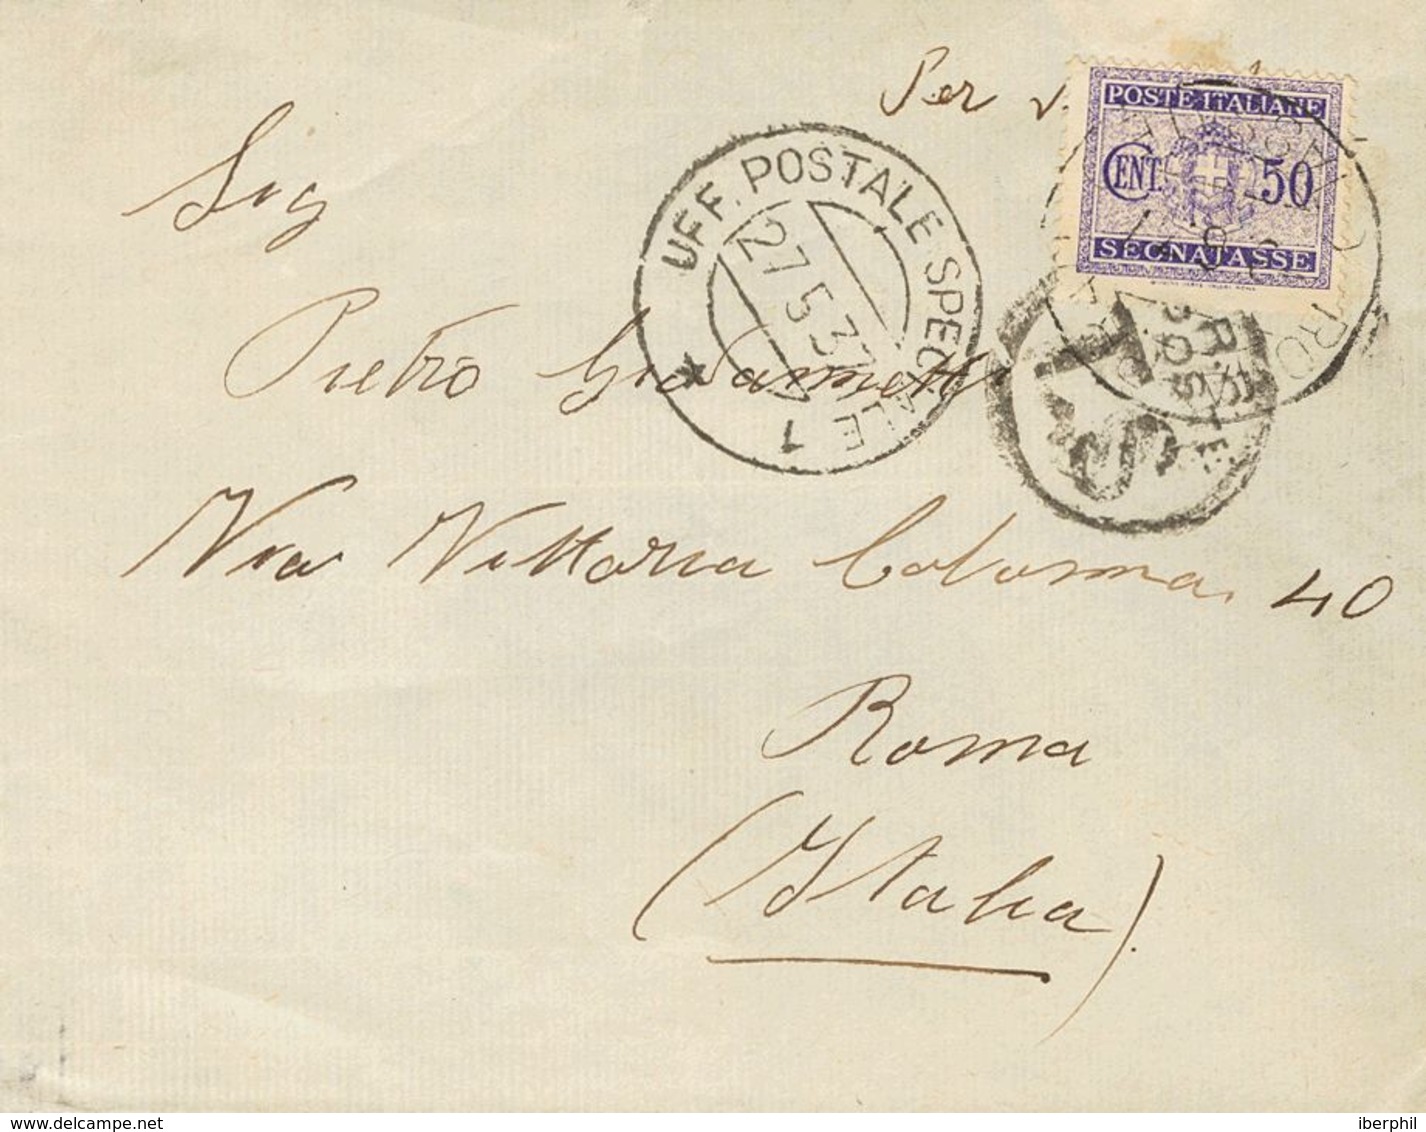 Per
POSTE ITALIANE
CENT. 50
SEGNATASSE
Sig
UFF. POSTALE SPECIALE 1
27 5 37
Pietro Giovannetti
T S
Via Vittoria Colonna, 40
Roma
(Italia)
delcampe.net
iberphil